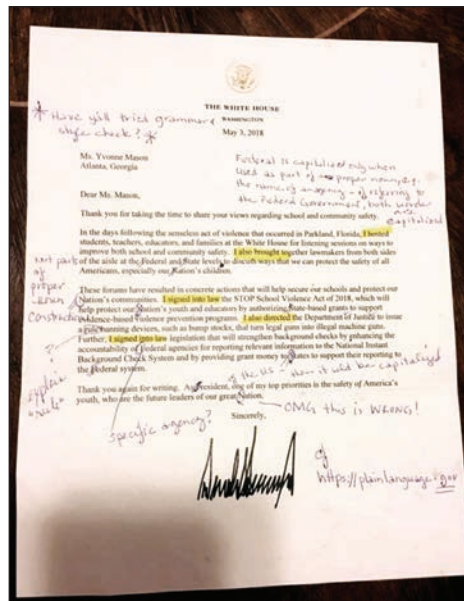 THE WHITE HOUSE
WASHINGTON
* Have y'all tried grammar &
style check? *
May 3, 2018
Ms. Yvonne Mason
Atlanta, Georgia
Federal is capitalized only when
used as part of a proper noun, e.g.
the name of an agency - if referring to
the Federal Government, both words
are
capitalized
Dear Ms. Mason,
Thank you for taking the time to share your views regarding school and community safety.
In the days following the senseless act of violence that occurred in Parkland, Florida, I hosted
students, teachers, educators, and families at the White House for listening sessions on ways to
improve both school and community safety. I also brought together lawmakers from both sides
of the aisle at the Federal and State levels to discuss ways that we can protect the safety of all
Americans, especially our Nation's children.
Not part
of
proper
noun
construction
These forums have resulted in concrete actions that will help secure our schools and protect our
Nation's communities. I signed into law the STOP School Violence Act of 2018, which will
help protect our Nation's youth and educators by authorizing State-based grants to support
evidence-based violence prevention programs. I also directed the Department of Justice to issue
a rule banning devices, such as bump stocks, that turn legal guns into illegal machine guns.
Further, I signed into law legislation that will strengthen background checks by enhancing the
accountability of Federal agencies for reporting relevant information to the National Instant
Background Check System and by providing grant money to States to support their reporting to
the Federal system.
?
explain
"rule"
of the US - then it would be capitalized
Thank you again for writing. As President, one of my top priorities is the safety of America's
youth, who are the future leaders of our great Nation.
OMG this is WRONG!
Sincerely,
specific agency?
of
https://plainlanguage.gov